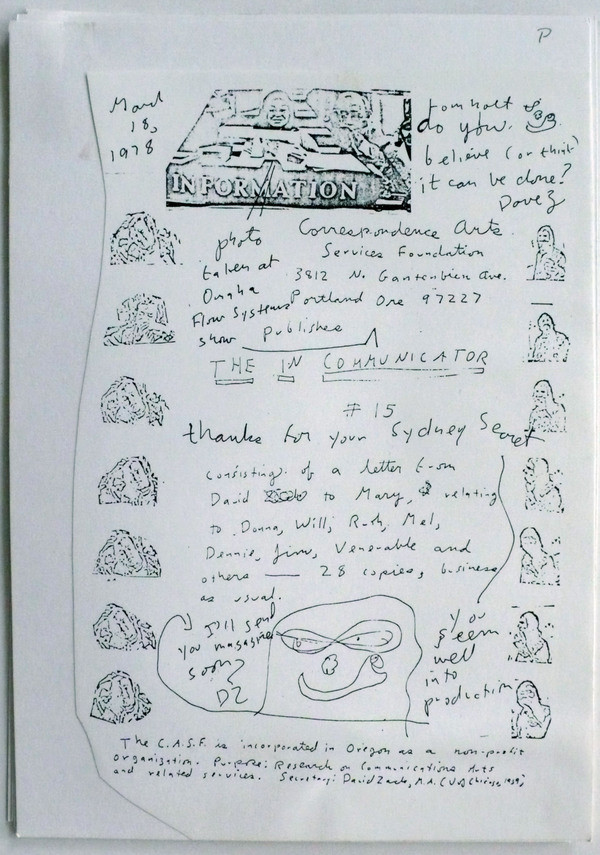 P
March
18,
1978
INFORMATION
tom holt
do you
believe (or think)
it can be done?
Dave Z
photo
taken at
Omaha
Flow Systems
show
Correspondence Arts
Services Foundation
3812 N. Gantenbien Ave.
Portland Ore 97227
Publishes
THE IN COMMUNICATOR
# 15
thanks for your Sydney Secret
consisting of a letter from
David to Mary, relating
to Donna, Will, Ruth, Mel,
Dennie, Jim, Venerable and
others — 28 copies, business
as usual.
I'll send
you magazine
soon
DZ
you
seem
well
into
production
The C.A.S.F. is incorporated in Oregon as a non-profit
organization. Purpose: Research on Communications Arts
and related services. Secretary: David Zack, M.A. (U of Chicago,